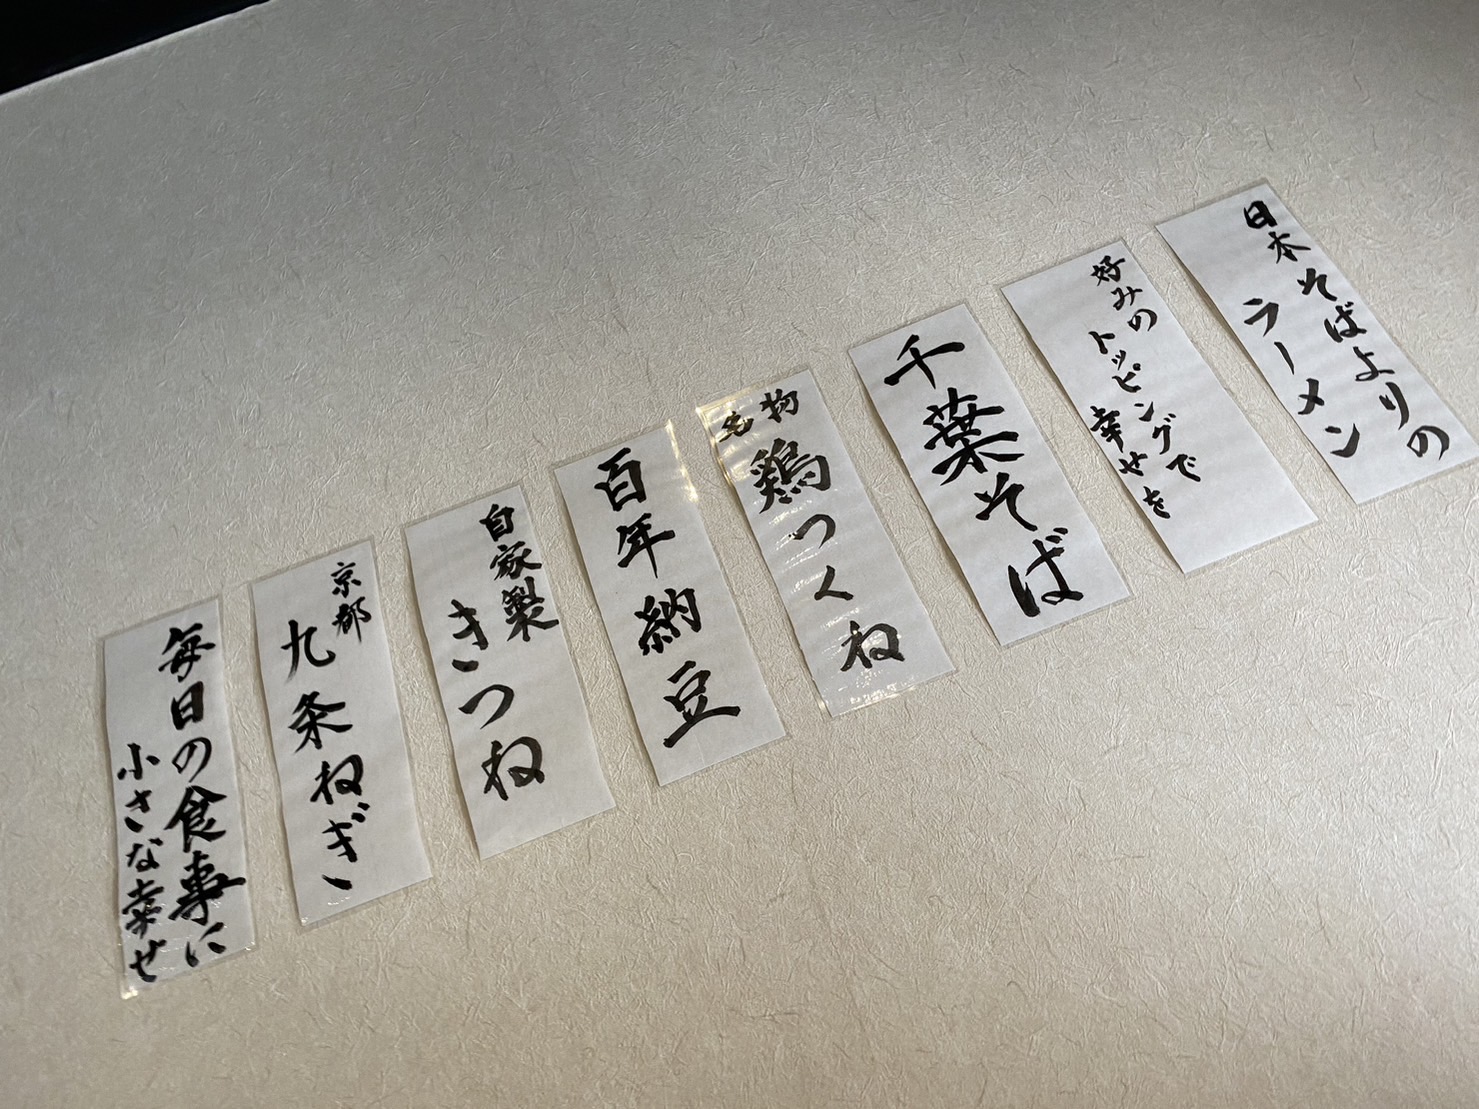 日本そばよりの
ラーメン
好みの
トッピングで
幸せを
千葉そば
名物
鶏つくね
百年納豆
自家製
きつね
京都
九条ねぎ
毎日の食事に
小さな幸せ